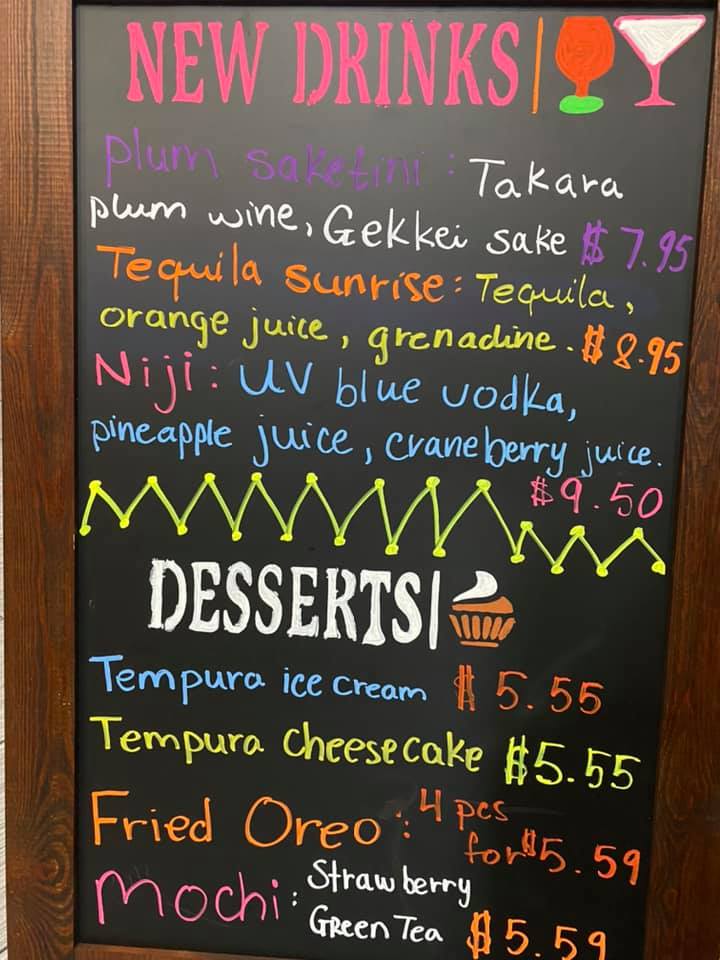 NEW DRINKS
plum saketini: Takara
plum wine, Gekkei sake $7.95
Tequila sunrise: Tequila,
orange juice, grenadine. $8.95
Niji: UV blue vodka,
pineapple juice, craneberry juice.
$9.50
DESSERTS
Tempura ice cream $5.55
Tempura cheesecake $5.55
Fried Oreo: 4 pcs
for $5.59
Mochi: Strawberry
Green Tea $5.59